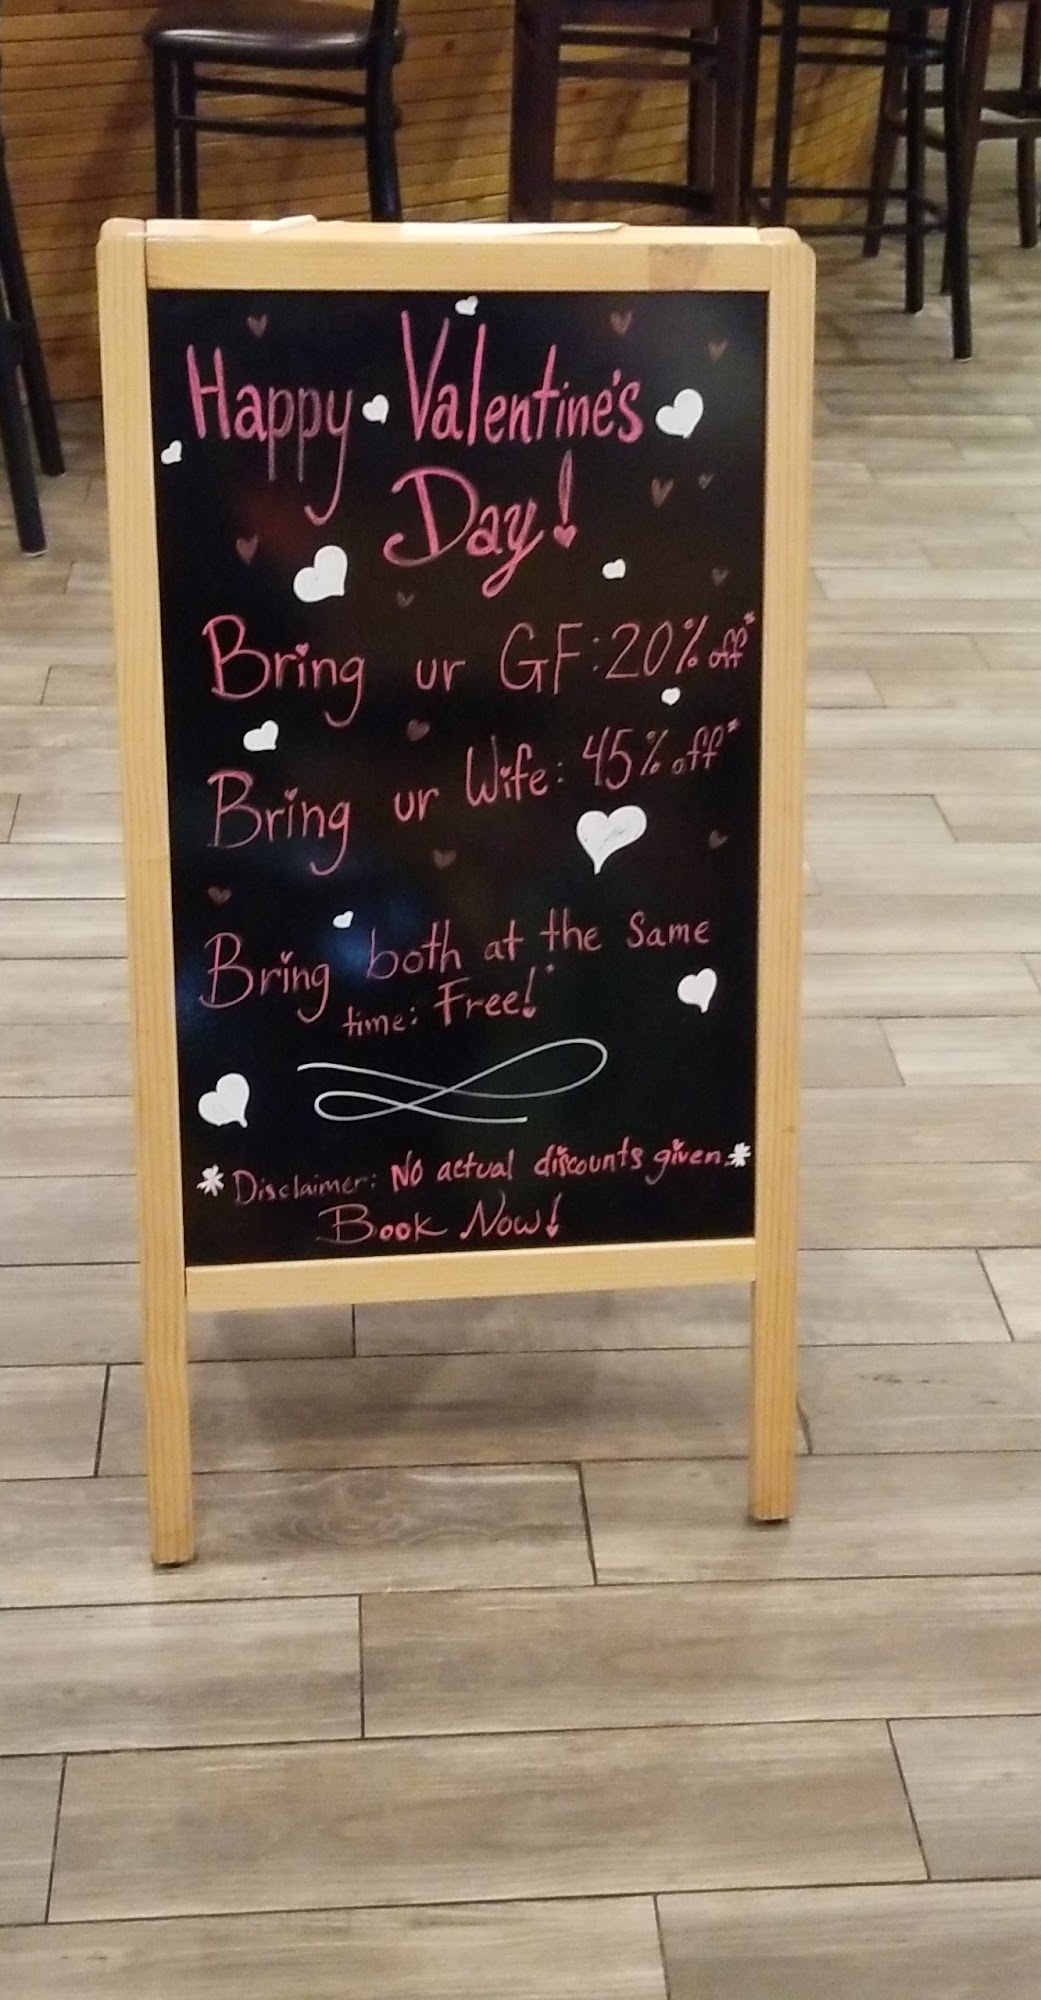 Happy Valentine's
Day!
Bring ur GF: 20% off*
Bring ur Wife: 45% off*
Bring both at the Same
time: Free!*
* Disclaimer: No actual discounts given. *
Book Now!